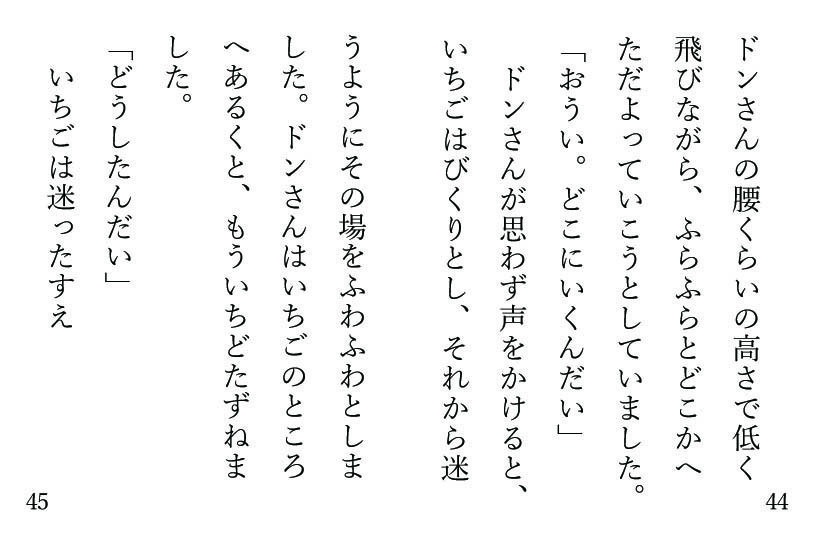 ドンさんの腰くらいの高さで低く
飛びながら、ふらふらとどこかへ
ただよっていこうとしていました。
「おうい。どこにいくんだい」
ドンさんが思わず声をかけると、
いちごはびくりとし、それから迷
44
うようにその場をふわふわとしま
した。ドンさんはいちごのところ
へあるくと、もういちどたずねま
した。
「どうしたんだい」
いちごは迷ったすえ
45